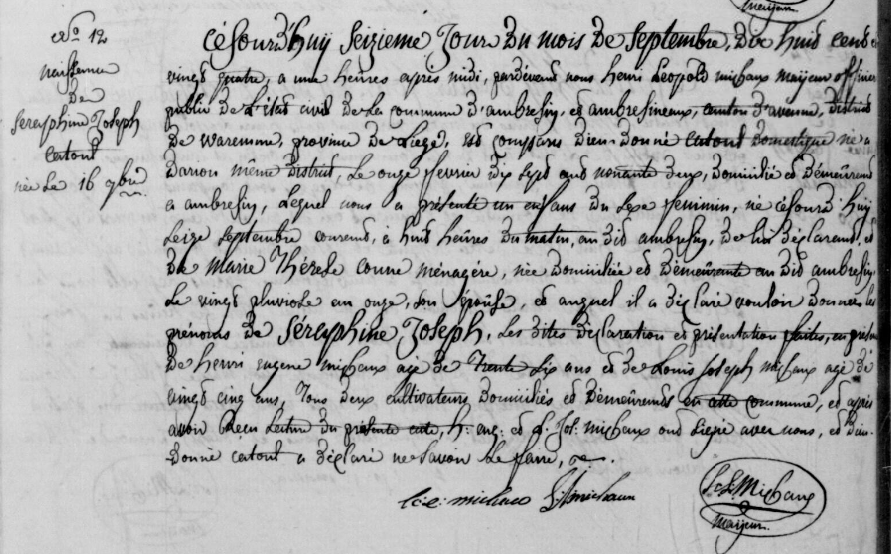 mayeur
N.o 12
naissance
de
Seraphine Joseph
Cartont
née Le 16 7bre
Céjourd'huy Seizieme Jour Du mois De Septembre, Dix huit cent et
vingt quatre, a une heures après midi, pardevant nous henri Léopold michaux mayeur officier
public De L'état civil De La commune D'ambresin, et ambresineaux, canton d'avenne, District
De Waremme, province De Liege, est comparu Dieu-Donné Cartont Domestique né a
Darion même District, Le onze fevrier Dix sept cent nonante Deux, Domicilié et Démeûrent
a ambresin, Lequel nous a présente un enfant Du sexe feminin, né céjourd'huy
Seize Septembre courent, à huit heûres Du matin, au dit ambresin, De lui Déclarent, et
De Marie Thérèse conne ménagère, née Domiciliée et Démeûrante au Dit ambresin
Le vingt pluviose an onze, son Epouse, et auquel il a Déclaré vouloir Donner les
prénoms De Séraphine Joseph, Les Dites Déclaration et présentation faites, en présence
De henri eugene michaux agé De Trente Six ans et De Louis Joseph michaux agé De
vingt cinq ans, Tous Deux cultivateurs Domiciliés et Démeûrents en cette commune, et après
avoir Reçu Lecture Du présente acte, h: eug: et L: Jos: michaux ont signé avec nous, et Dieu-
Donné Cartont a Déclaré ne savoir Le faire,
michaux L: J: michaux
H: L: Michaux
mayeur